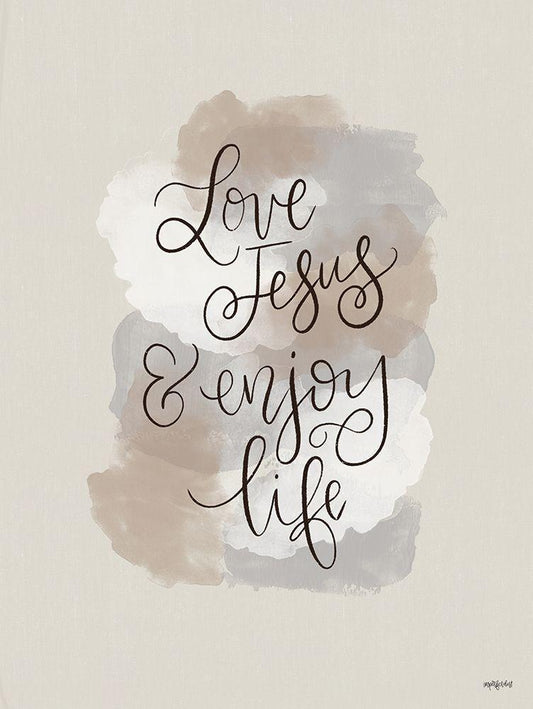 Love
Jesus
& enjoy
life